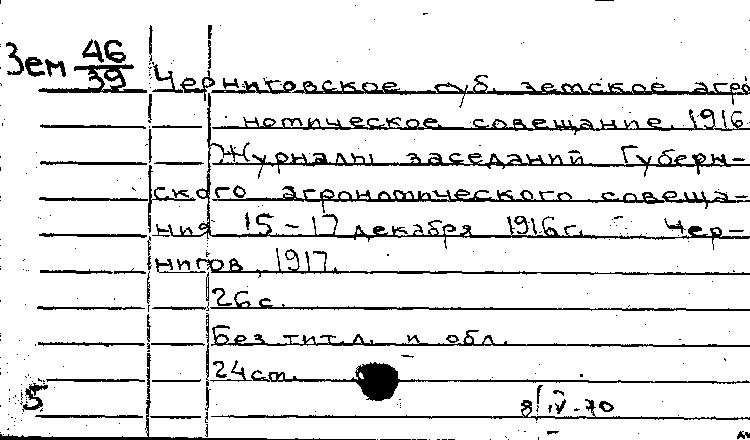 Зем 46/39
Черниговское губ. земское агро
номическое совещание. 1916
Журналы заседаний Губерн-
ского агрономического совеща-
ния 15-17 декабря 1916 г. - Чер-
нигов, 1917.
26 с.
Без тит. л. и обл.
24 см.
5
8/IV-70